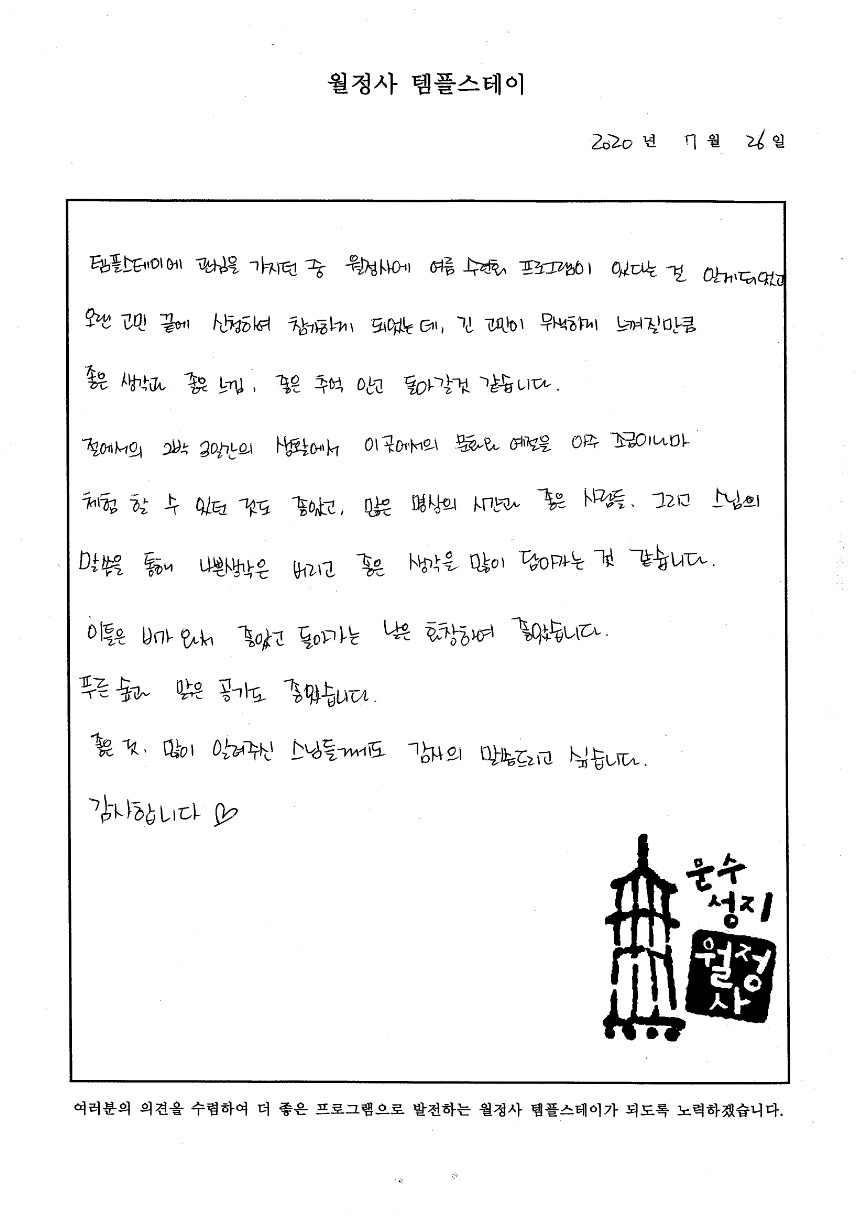 월정사 템플스테이
2020 년 7 월 26 일
템플스테이에 관심을 가지던 중 월정사에 여름 수련회 프로그램이 있다는 걸 알게되었고
오랜 고민 끝에 신청하여 참가하게 되었는데, 긴 고민이 무색하게 느껴질만큼
좋은 생각과 좋은 느낌, 좋은 추억 안고 돌아갈것 같습니다.
절에서의 2박 3일간의 생활에서 이곳에서의 문화와 예절을 아주 조금이나마
체험 할 수 있던 것도 좋았고, 많은 명상의 시간과 좋은 사람들, 그리고 스님의
말씀을 통해 나쁜생각은 버리고 좋은 생각을 많이 담아가는 것 같습니다.
이틀은 비가 와서 좋았고 돌아가는 날은 화창하여 좋았습니다.
푸른 숲과 맑은 공기도 좋았습니다.
좋은 것, 많이 알려주신 스님들께도 감사의 말씀드리고 싶습니다.
감사합니다 ♡
문수
성지
월정
사
여러분의 의견을 수렴하여 더 좋은 프로그램으로 발전하는 월정사 템플스테이가 되도록 노력하겠습니다.